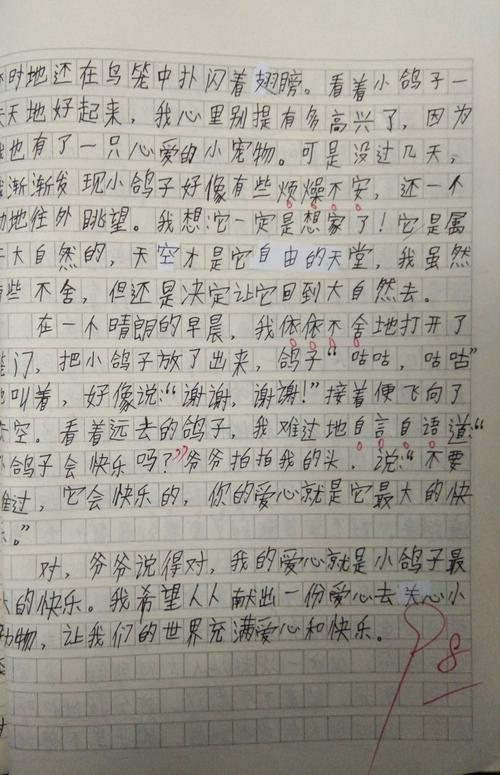 时地还在鸟笼中扑闪着翅膀。看着小鸽子一
天天地好起来，我心里别提有多高兴了，因为
我也有了一只心爱的小宠物。可是没过几天，
我渐渐发现小鸽子好像有些烦燥不安，还一个
劲地住外眺望。我想：它一定是想家了！它是属
于大自然的，天空才是它自由的天堂，我虽然
有些不舍，但还是决定让它回到大自然去。
在一个晴朗的早晨，我依依不舍地打开了
笼门，把小鸽子放了出来，鸽子“咕咕，咕咕”
地叫着，好像说：“谢谢，谢谢！”接着便飞向了
天空。看着远去的鸽子，我难过地自言自语道：“
小鸽子会快乐吗？”爷爷拍拍我的头，说：“不要
难过，它会快乐的，你的爱心就是它最大的快
乐。”
对，爷爷说得对，我的爱心就是小鸽子最
大的快乐。我希望人人献出一份爱心去关心小
动物，让我们的世界充满爱心和快乐。
98